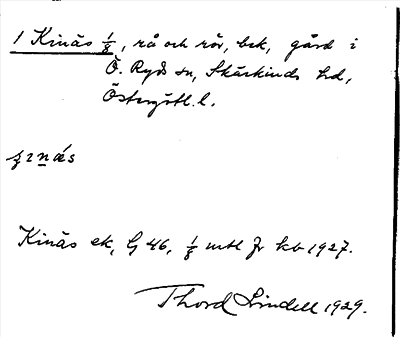 1 Kinäs 1/8, rå och rör, bek, gård i
Ö. Ryds sn, Skärkinds hd,
Östergötl. l.
ɟɩnä́s
Kinäs ek, G 46, 1/8 mtl Jr kb 1927.
Thord Lindell 1929.